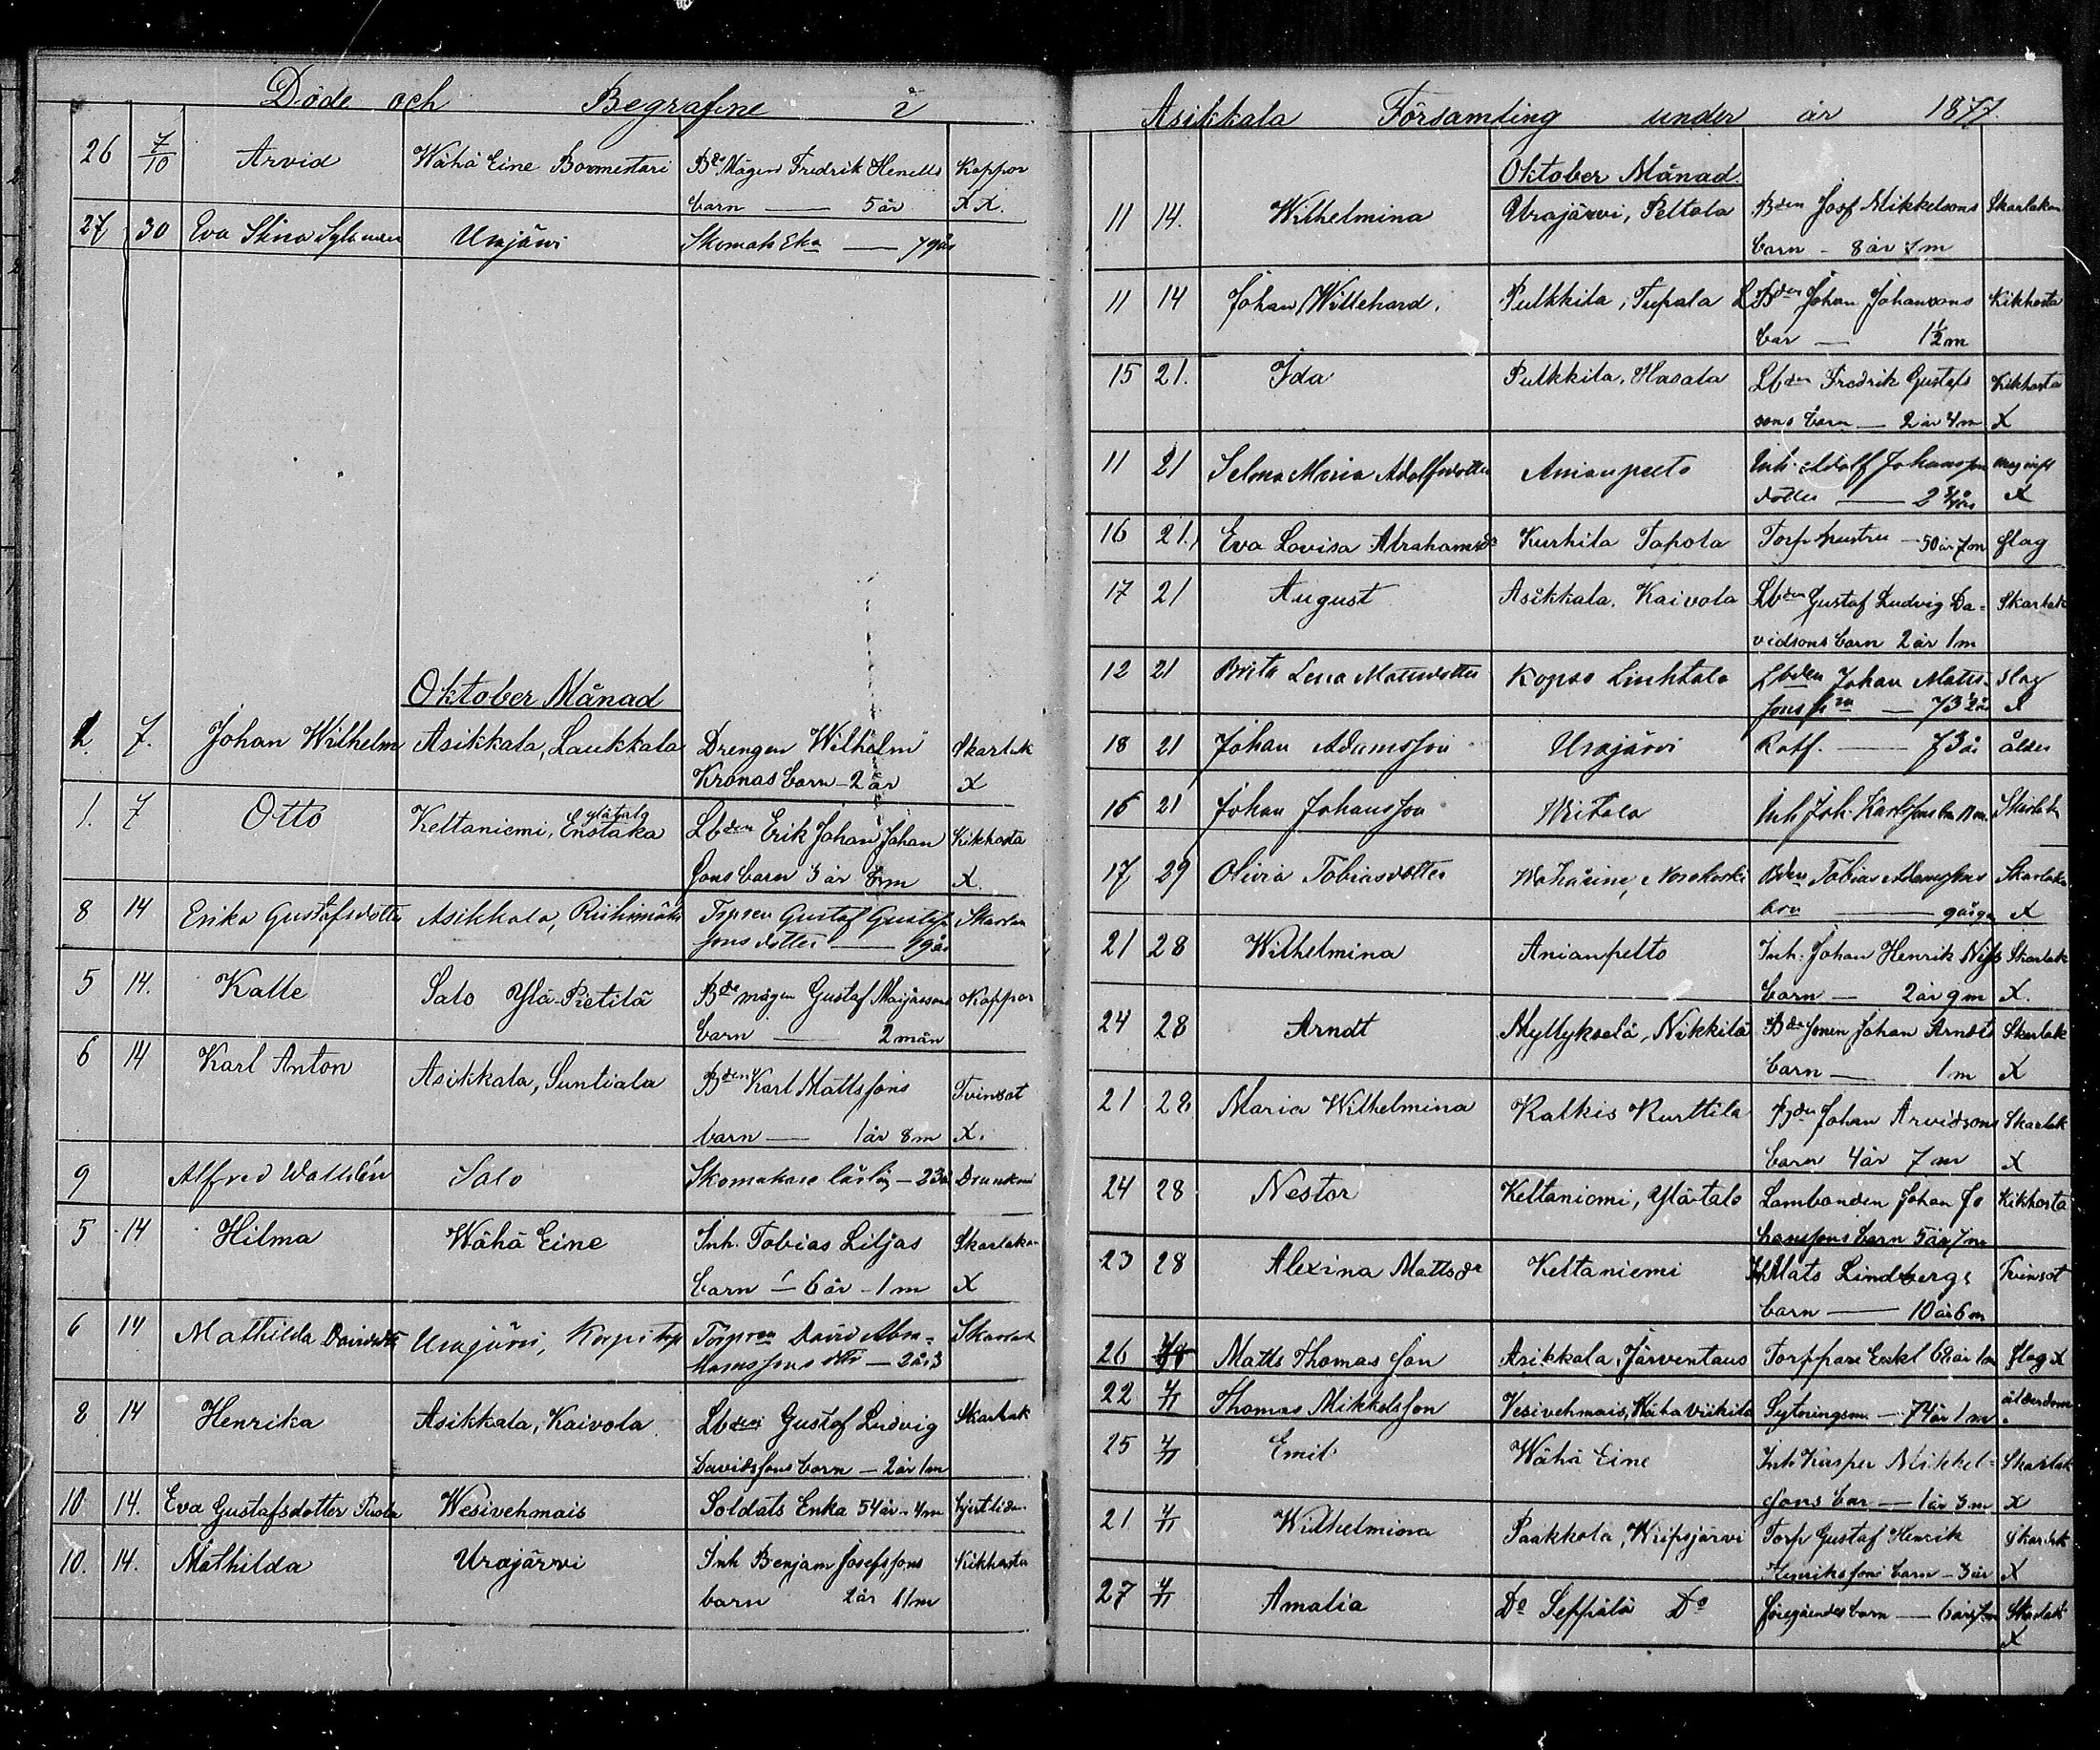 Döde och Begrafne i
26 7/10 Arvid Wähä Eine Bovmestari Bde Mågen Fredrik Henells Koppor
barn — 5 år X X.
27 30 Eva Stina Urajärvi Skomak Eka — 79 år
Oktober Månad
2. 7. Johan Wilhelm Asikkala, Laukkala Drengen Wilhelm Skarlak
Kronas barn - 2 år X
1. 7 Otto Keltaniemi, Enstaka ylätalo Lbden Erik Johan Johan Kikhosta
sons barn 3 år 6 m X.
8 14 Erika Gustafsdotter Asikkala, Riihimäki Torpren Gustaf Gustafs Skarlak
sons dotter — 19 år
5 14. Kalle Salo Ylä-Pietilä Bde mågen Gustaf Maijassons Koppor
barn — 2 mån
6 14 Karl Anton Asikkala, Suntiala Bden Karl Mattssons Tvinsot
barn — 1 år 8 m X.
9 Alfred Wallden Salo Skomakare lärling - 23 år Drunknad
5 14 Hilma Wähä Eine Inh. Tobias Liljas Skarlakan
barn — 6 år - 1 m X
6 14 Mathilda Davidsdtr Urajärvi, Korpi torp Torpren David Abra- Skarlak
hamssons dtr — 2 år 3
8 14 Henrika Asikkala, Kaivola Lbden Gustaf Ludvig Skarlak
Davidssons barn — 2 år 1 m
10 14. Eva Gustafsdotter Wesivehmais Soldats Enka 54 år - 4 m hjertlidn.
10. 14. Mathilda Urajärvi Inh Benjam Josefssons Kikhosta
barn 2 år 11 m
Asikkala Församling under år 1877.
Oktober Månad.
11 14. Wilhelmina Urajärvi, Peltola Bden Josf Mikkelsons Skarlakan
barn - 8 år 7 m
11 14 Johan Willehard. Pulkkila, Tupala LBden Johan Johansons Kikhosta
bar — 1½ m
15 21. Ida Pulkkila, Hasala Lbden Fredrik Gustafs Kikhosta
sons barn — 2 år 4 m X
11 21 Selma Maria Adolfsdotter Anianpelto Inh. Adolf Johansson
dotter — 2 ¾ år X
16 21. Eva Lovisa Abrahamsdr Kurhila Tapola Torp hustru — 50 år 7 m slag
17 21 August Asikkala, Kaivola Lbden Gustaf Ludvig Da- Skarlak
vidsons barn 2 år 1 m
12 21 Brita Lena Mattsdotter Kopso Linhtala Lbden Johan Matts- Slag
sons — 73 ½ år X
18 21 Johan Adamsson Urajärvi Rotf. — 73 år ålder
16 21 Johan Johansson Writala Inh Joh. Karlssons Skarlak
17 29 Olivia Tobiasdotter Bden Tobias Adamssons Skarlakan
brn — X
21 28 Wilhelmina Anianpelto Inh. Johan Henrik Skarlak
barn — 2 år 9 m X.
24 28 Arndt Myllykselä, Nikkilä Bde sonen Johan Arndts Skarlak
barn — 1 m X
21 28 Maria Wilhelmina Kalkis Kurttila Bden Johan Arvidsons Skarlak
barn 4 år 7 m X
24 28 Nestor Keltaniemi, Ylätalo Lambonden Johan Jo Kikhosta
hanssons barn 5 år 7 m
23 28 Alexina Mattsdr Keltaniemi Inh Mats Lindbergs Tvinsot
barn — 10 år 6 m
26 Matts Thomas son Asikkala, Järventaus Torppare Enkl 68 år 1 m slag X
22 4/11 Thomas Mikkelsson Vesivehmais, Wähä Wikila Sytningsm — 74 år 1 m ålderdom
25 4/11 Emil Wähä Eine Inh Kasper Mikkel- Skarlak
sons bar — 1 år 3 m X
21 4/11 Wilhelmina Paakkola, Wiipsjärvi Torp Gustaf Henrik Skarlak
Henrikssons barn — 3 år X
27 4/11 Amalia Do Seppälä Do föregåendes barn — 6 år 7 m Skarlak
X